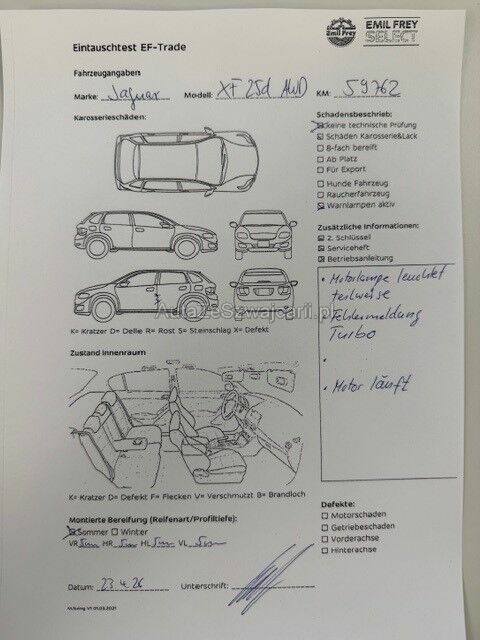 Emil Frey
EMIL FREY
SELECT
Eintauschtest EF-Trade
Fahrzeugangaben:
Marke: Jaguar Modell: XF 25d AWD KM: 59762
Karosserieschäden:
Schadensbeschrieb:
keine technische Prüfung
Schäden Karosserie&Lack
8-fach bereift
Ab Platz
Für Export
Hunde Fahrzeug
Raucherfahrzeug
Warnlampen aktiv
Zusätzliche Informationen:
2. Schlüssel
Serviceheft
Betriebsanleitung
• Motorlampe leuchtet
teilweise
• Fehlermeldung
Turbo
•
• Motor läuft
K= Kratzer D= Delle R= Rost S= Steinschlag X= Defekt
Zustand Innenraum
K= Kratzer D= Defekt F= Flecken V= Verschmutzt B= Brandloch
Montierte Bereifung (Reifenart/Profiltiefe):
Sommer Winter
VR 5mm HR 5mm HL 5mm VL 5mm
Defekte:
Motorschaden
Getriebeschaden
Vorderachse
Hinterachse
Datum: 23.4.26 Unterschrift:
V1 01.03.2021